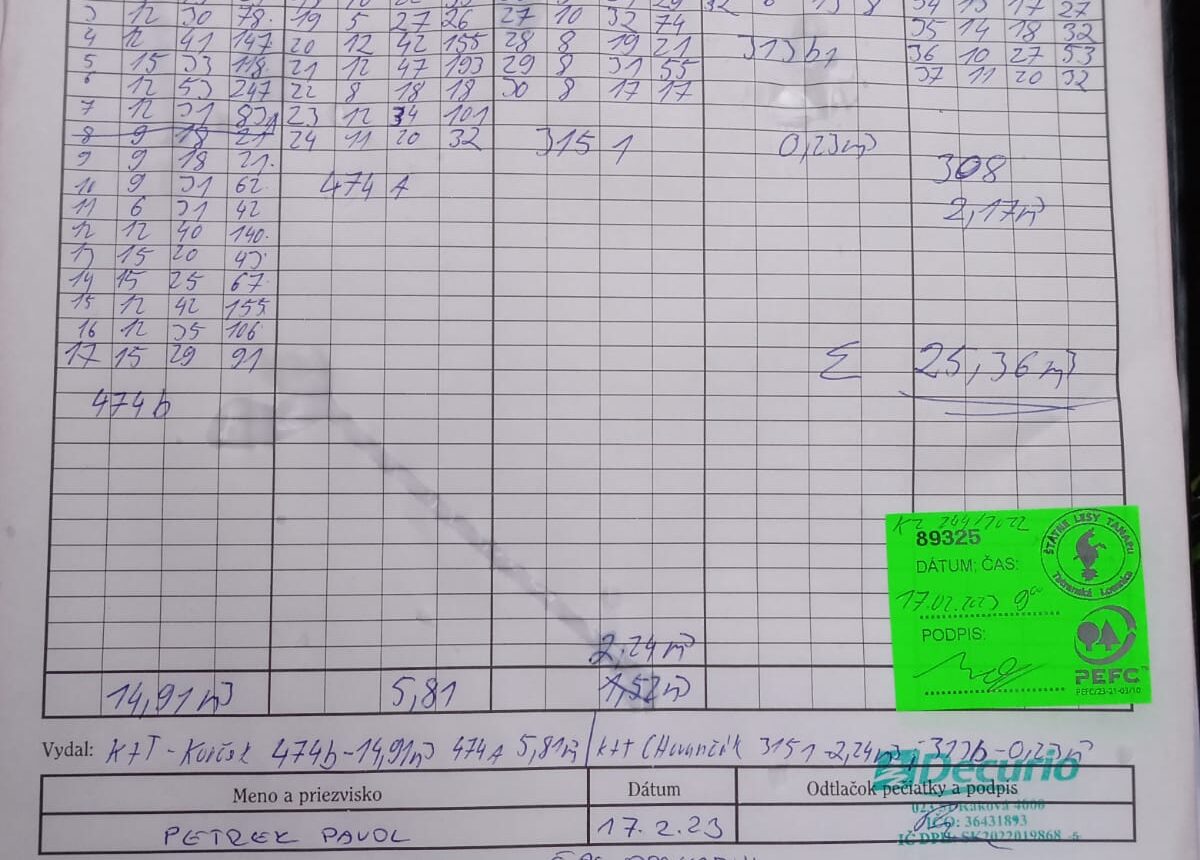 3 12 30 78. 19 5 27 26 27 10 32 74
4 12 41 147 20 12 42 155 28 8 19 21 313b1 35 14 18 32
5 15 33 118. 21 12 47 193 29 8 31 55 36 10 27 53
6 12 53 247 22 8 18 18 30 8 17 17 37 11 20 32
7 12 31 83 23 12 34 101
8 9 18 21 24 11 20 32 315 1 0,23m³
9 9 18 21. 308
10 9 31 62. 474 A
11 6 31 42 2,17m³
12 12 40 140.
13 15 20 43.
14 15 25 67.
15 12 42 155.
16 12 35 106
17 15 29 91 Σ 25,36m³
474 b
KZ 244/2022
89325
ŠTÁTNE LESY TANAPU
Tatranská Lomnica
DÁTUM; ČAS:
17.02.2023 9⁰⁰
PODPIS:
PEFC™
PEFC/23-21-03/10
2,24m³
14,91m³ 5,81 1,52m³
Vydal: 474b-14,91m³ 474A 5,81m³ 315 1-2,24m³, -313b-0,23m³
Decurio
Meno a priezvisko Dátum Odtlačok pečiatky a podpis
PETREK PAVOL 17.2.23
IČO: 36431893
IČ DPH: SK2022019868